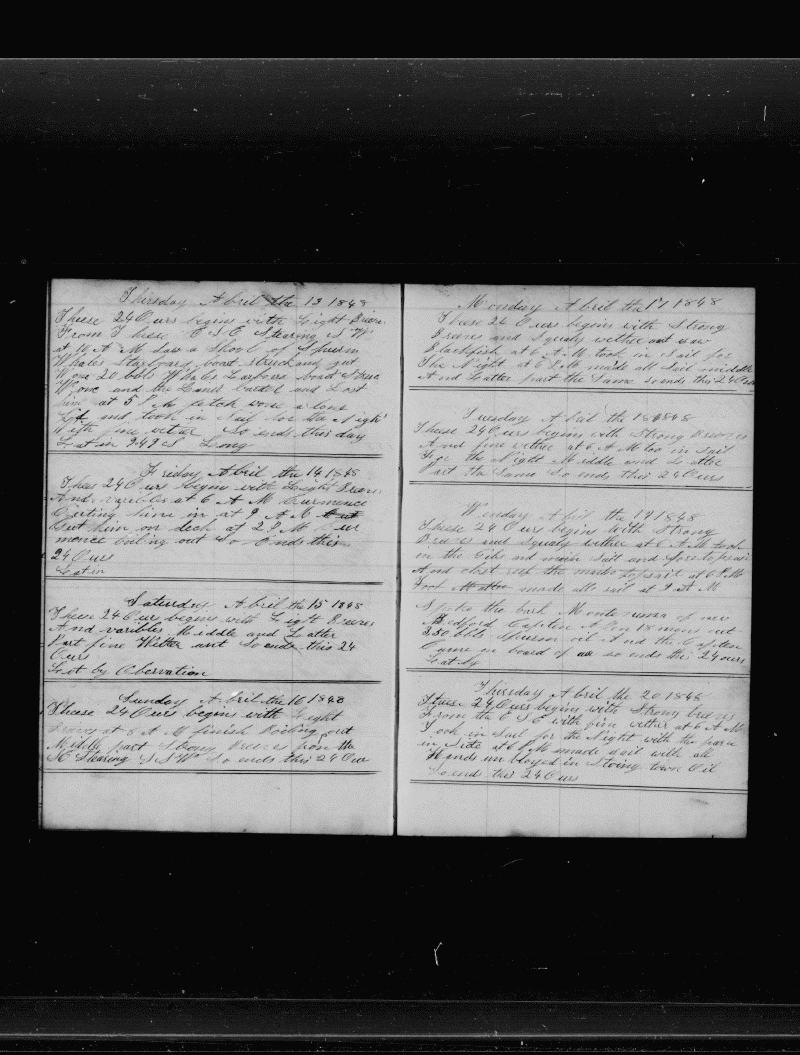 Thirsday Abril the 13 1848
These 24 Ours begins with Light Breeses
From These E S E Stearing S W
at 10 A M Saw a Shoal of Spurm
Whales Starbory boat struck and got
Wone 20 bbls Whales Larbore boat Struc
Wone and the Hand and Lost
him at 5 P M
and took in Sail for the Night
With fine wether So ends this day
Lat in 9.49 S Long
Friday Abril the 14 1848
Thes 24 Ours begins with Light Breeses
And varibles at 6 A M Curmence
Corting hime in at 9 A M
Gut him on deck at 2 P M Cur
mence boiling out So Ends this
24 Ours
Lat in
Saturday Abril the 15 1848
These 24 Ours begins with Light Breeses
And varibles Middle and Latter
Part fine Wether ant So ends this 24
Ours
Lat by Obervation
Sunday Abril the 16 1848
These 24 Ours begins with Light
at 6 A M finish Boiling out
Middle part Strong Breese from the
SE Stearing S S W So ends this 24 Our
Monday Abril the 17 1848
These 24 Ours begins with Strong
Breeses and Squaly wether saw
Blackfish at 6 A M took in Sail for
The Night at 6 P M made all Sail middle
And Latter part the Same so ends this 24 Ours
Tuesday Abril the 18 1848
These 24 Ours begins with Strong Breeses
And fine wether at 6 A M too in Sail
For the Night Middle and Latter
Part the Same So ends this 24 Ours
Winsday Abril the 19 1848
These 24 Ours begins with Strong
Breeses and Squaly wether at 6 A M took
in the Gib and main Sail and foretopsail
And close reef the main topsail at 6 P M
made all sail at 9 A M
Spoke the bark Montezuma of new
Bedford Captin 18 mons out
250 bbls spurm oil And the Captin
Came on board of us so ends this 24 ours
Lat by
Thirsday Abril the 20 1848
These 24 Ours begins with Strong breeses
From the E S E with fine wether at 6 A M
Took in Sail for the Night with the
in Site at 6 P M made sail with all
Hands imbloyed in Stoing town Oil
So ends this 24 Ours